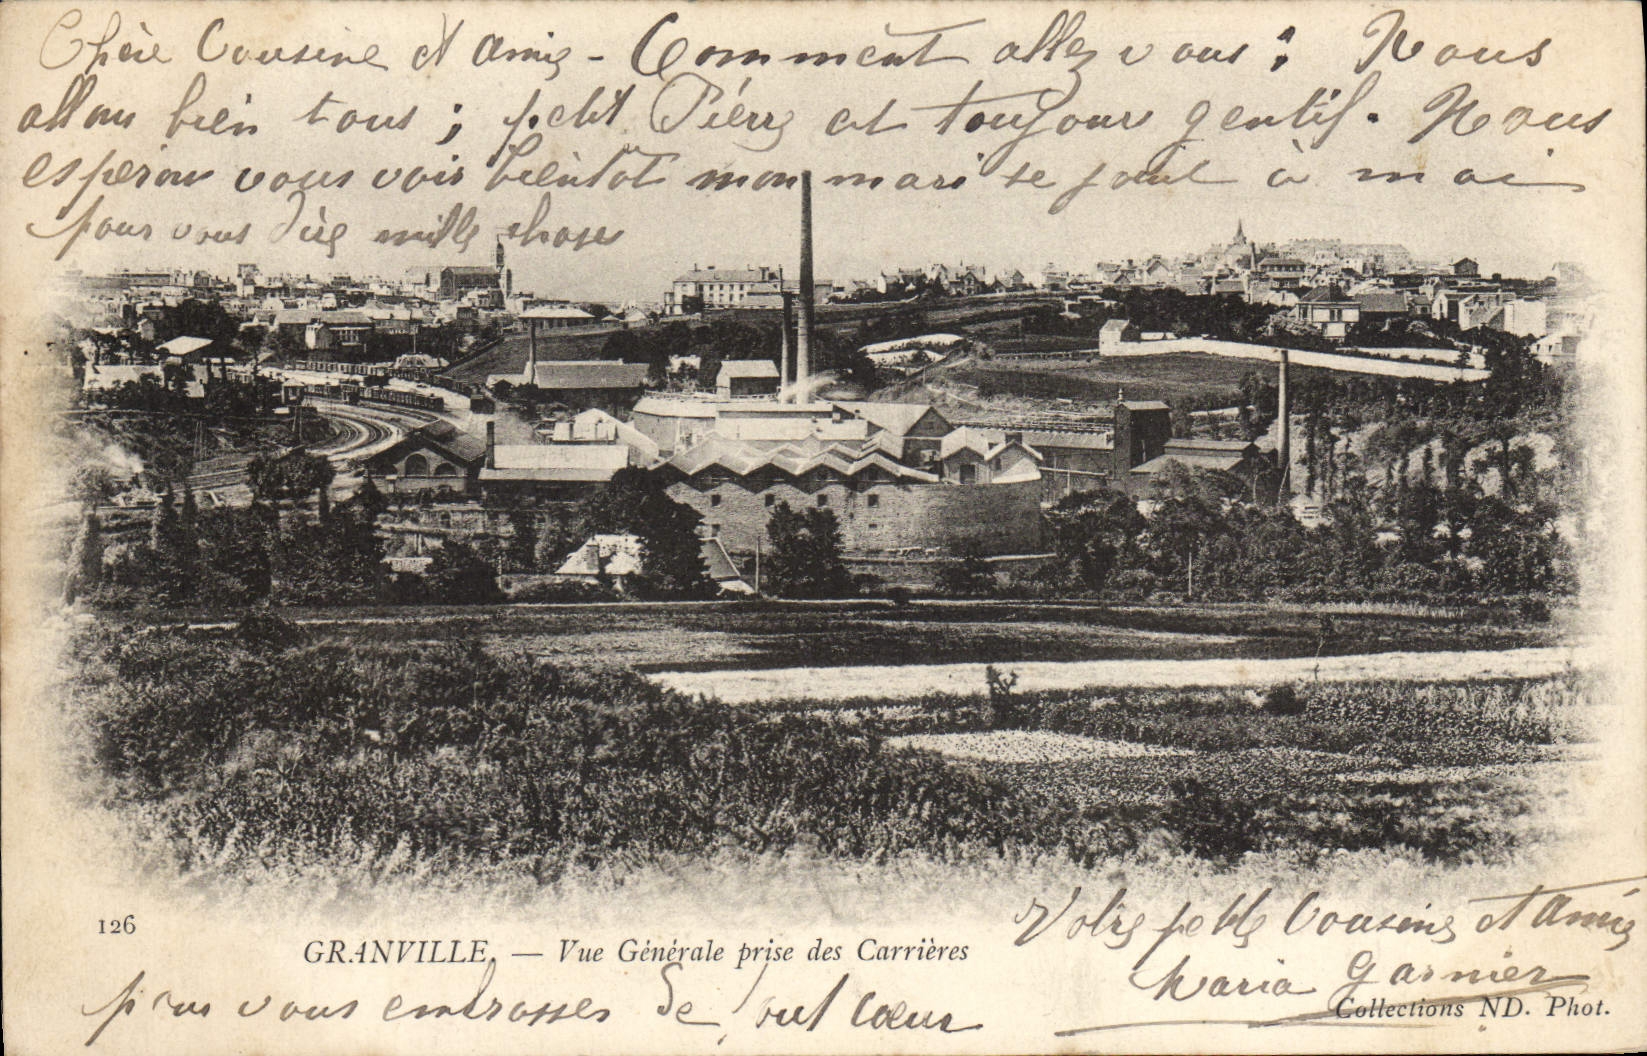 Chère Cousine et Amie - Comment allez vous ; Nous
allons bien tous ; petit Piérre et toujours gentif. Nous
espérons vous voir bientôt mon mari se joint à moi
pour vous dire mille choses
126
GRANVILLE. — Vue Générale prise des Carrières
pour vous embrasser de tout cœur
Votre petite Cousine et Amie
Maria Garnier
Collections ND. Phot.